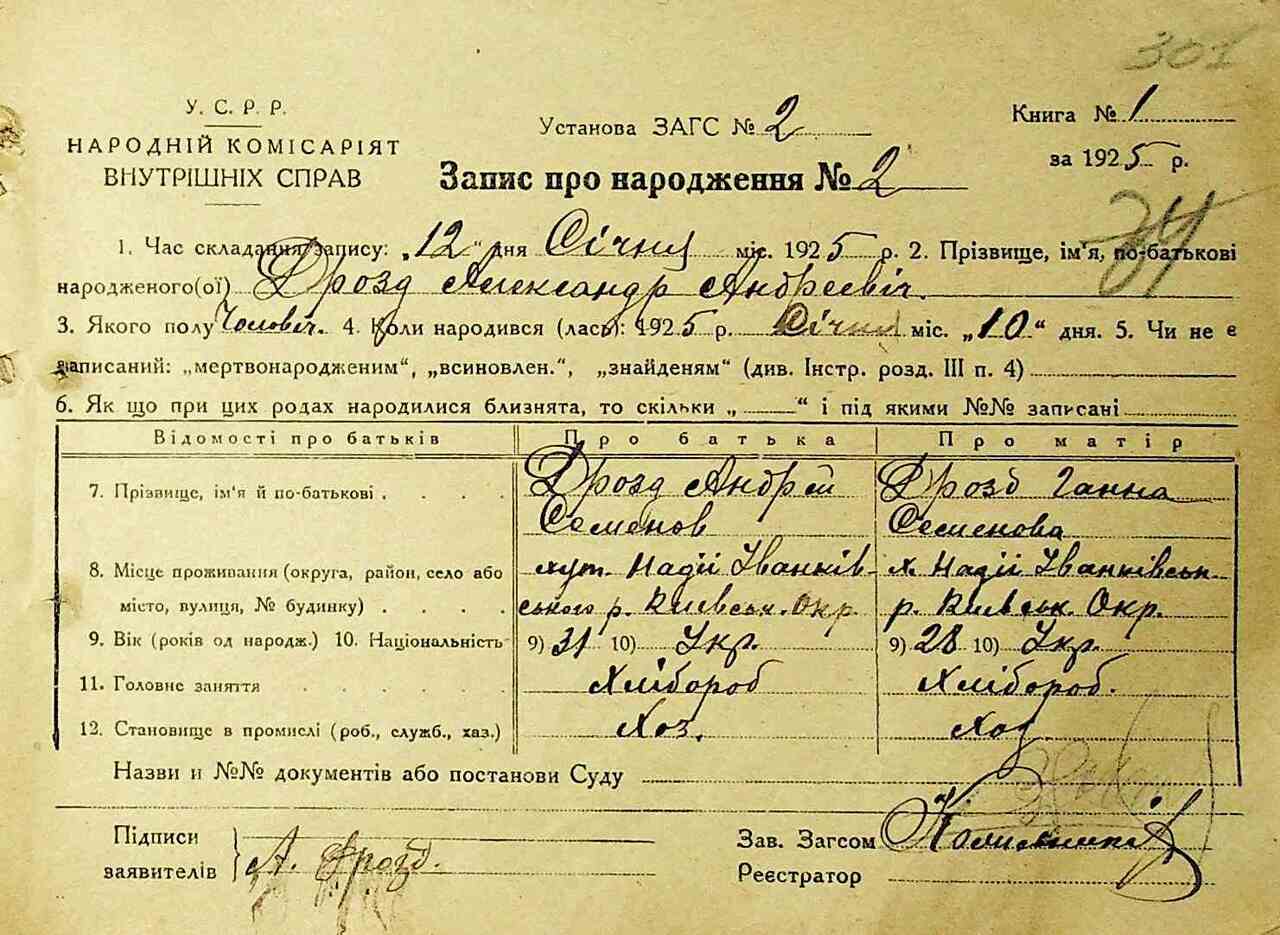 301
У. С. Р. Р.
НАРОДНІЙ КОМІСАРІЯТ
ВНУТРІШНІХ СПРАВ
Установа ЗАГС № 2
Запис про народження № 2
Книга № 1
за 1925 р.
1. Час складання запису: „12“ дня Січня міс. 1925 р. 2. Прізвище, ім'я, по-батькові
народженого(ої) Дрозд Александр Андреевіч.
3. Якого полу Чоловіч. 4. Коли народився (лась): 1925 р. Січня міс. „10“ дня. 5. Чи не є
записаний: „мертвонародженим“, „всиновлен.“, „знайденям“ (див. Інстр. розд. III п. 4)
6. Як що при цих родах народилися близнята, то скільки „ “ і під якими №№ записані
Відомості про батьків Про батька Про матір
7. Прізвище, ім'я й по-батькові . . . . Дрозд Андрей Дрозд Ганна
Семенов Семенова
8. Місце проживання (округа, район, село або хут. Надії Іванків- х. Надії Іванківськ.
місто, вулиця, № будинку) . . . . ського р. Київськ. Окр. р. Київськ. Окр.
9. Вік (років од народж.) 10. Національність 9) 31 10) Укр. 9) 28 10) Укр.
11. Головне заняття . . . . . Хлібороб Хлібороб.
12. Становище в промислі (роб., служб., хаз.) Хоз. Хоз.
Назви и №№ документів або постанови Суду
Підписи
заявителів А. Дрозд.
Зав. Загсом
Реєстратор